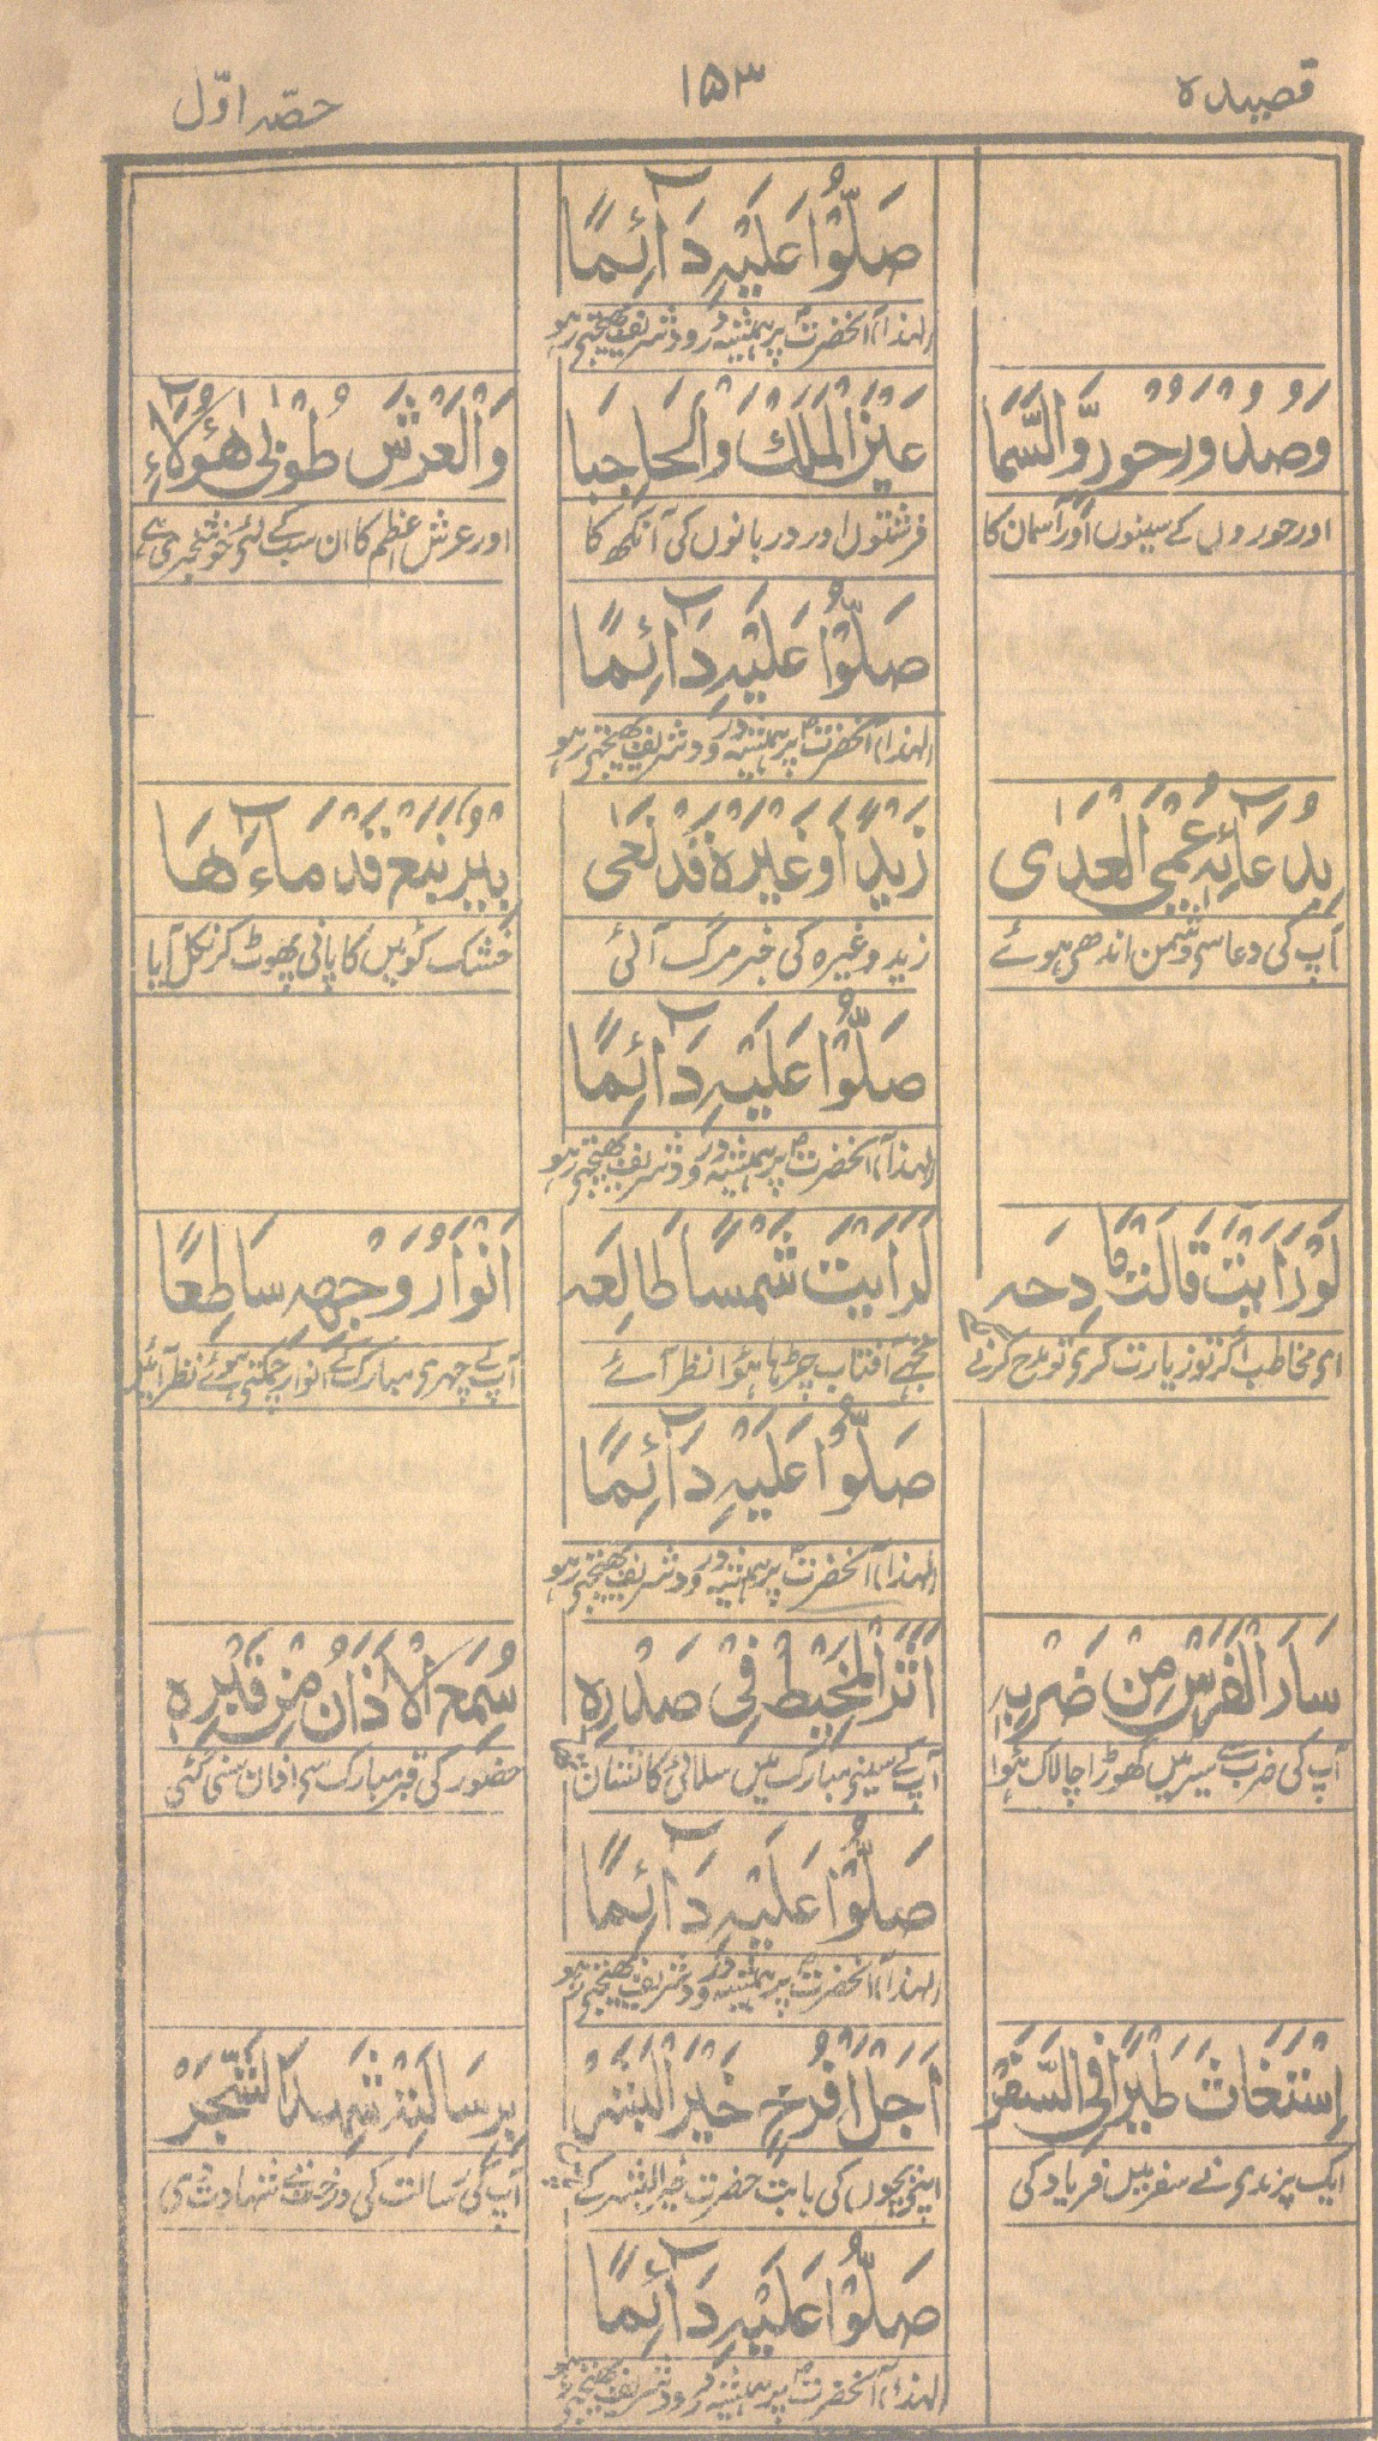 قصیدہ
۱۵۳
حصّہ اوّل
صَلُّوْا عَلَيْهِ دَآئِمًا
لہٰذا آنحضرتؐ پر ہمیشہ درود شریف بھیجتے رہو
وَصُدُوْرِ حُوْرٍ وَّالسَّمَا
عَيْنِ الْمَلَكْ وَالْحَاجِبَا
وَالْعَرْشَ طُوْبٰى هٰٓؤُلَاءِ
اور حوروں کے سینوں اور آسمان کا
فرشتوں اور دربانوں کی آنکھ کا
اور عرش اعظم کا ان سب کے لئے خوشخبری ہے
صَلُّوْا عَلَيْهِ دَآئِمًا
لہٰذا آنحضرتؐ پر ہمیشہ درود شریف بھیجتے رہو
بِدُعَآئِهٖ عُمْيُ الْعِدٰى
زَيْدًا وَّغَيْرَهٗ قَدْ نَعٰى
بِئْرٌ نَبَعَ قَدْ مَآءَهَا
آپ کی دعا سے دشمن اندھے ہوئے
زید وغیرہ کی خبر مرگ آئی
خشک کوئیں کا پانی پھوٹ کر نکل آیا
صَلُّوْا عَلَيْهِ دَآئِمًا
لہٰذا آنحضرتؐ پر ہمیشہ درود شریف بھیجتے رہو
لَوْ رَاَيْتَ قَالَتْ مَادِحَه
لَرَاَيْتَ شَمْسًا طَالِعَه
اَنْوَارُ وَجْهِهٖ سَاطِعًا
اے مخاطب اگر تو زیارت کرے تو مدح کرنے
تجھے آفتاب چڑھا ہؤا نظر آئے
آپ کے چہرے مبارک کے انوار چمکتے ہوئے نظر آئیں
صَلُّوْا عَلَيْهِ دَآئِمًا
لہٰذا آنحضرتؐ پر ہمیشہ درود شریف بھیجتے رہو
سَارَ الْفَرَسْ مِنْ ضَرْبِهٖ
اَثَرَ الْمَخِيْطْ فِيْ صَدْرِهٖ
سُمِعَ الْاَذَانُ مِنْ قَبْرِهٖ
آپ کی ضرب سے سیر میں گھوڑا چالاک ہؤا
آپ کے سینے مبارک میں سلائی کا نشان
حضور کی قبر مبارک سے اذان سنی گئی
صَلُّوْا عَلَيْهِ دَآئِمًا
لہٰذا آنحضرتؐ پر ہمیشہ درود شریف بھیجتے رہو
اِسْتَغَاثَ طَيْرًا فِي السَّفَرْ
اَجَلْ اَفْرُخِهٖ خَيْرَ الْبَشَرْ
بِرِسَالَتِهٖ شَهِدَ الشَّجَرْ
ایک پرندے نے سفر میں فریاد کی
اپنے بچوں کی بابت حضرت خیر البشر کے
آپ کی رسالت کی درخت نے شہادت دی
صَلُّوْا عَلَيْهِ دَآئِمًا
لہٰذا آنحضرتؐ پر ہمیشہ درود شریف بھیجتے رہو